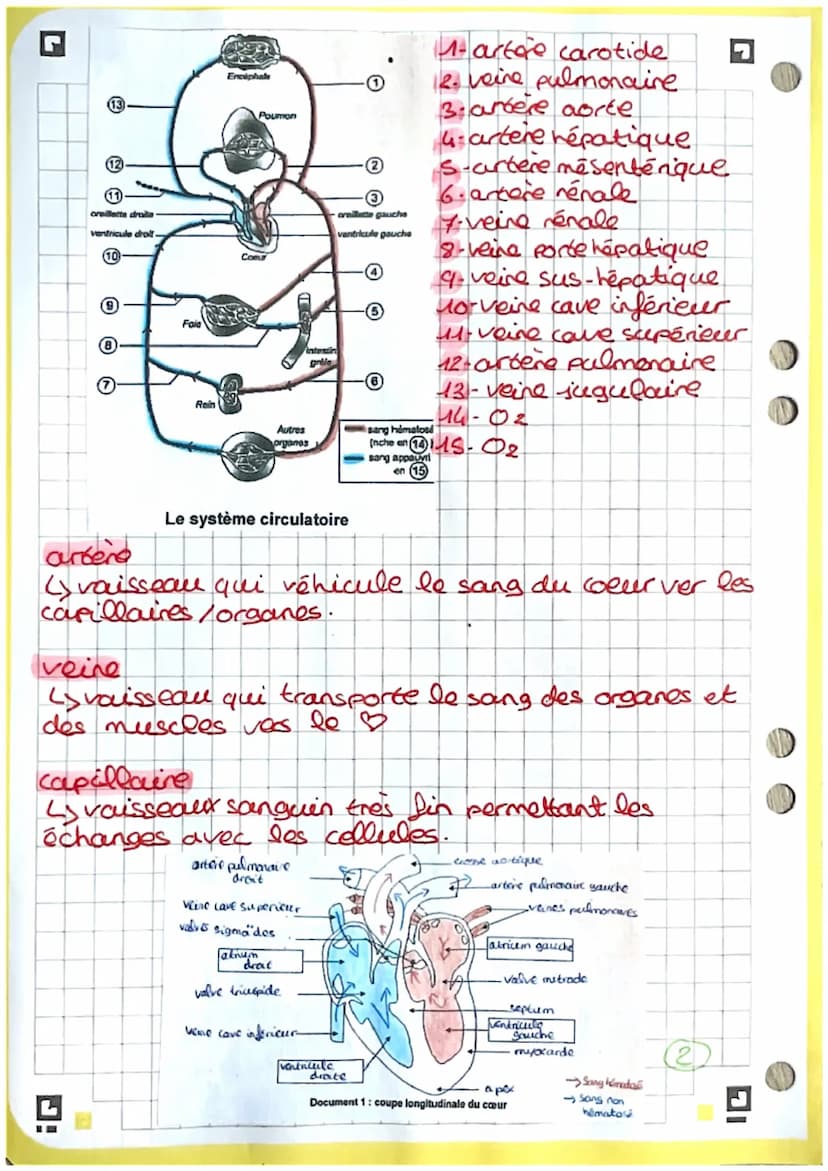 1- artère carotide
2- veine pulmonaire
3- artère aorte
4- artère hépatique
5- artère mésentérique
6- artère rénale
7- veine rénale
8- veine porte hépatique
9- veine sus-hépatique
10- veine cave inférieur
11- veine cave supérieur
12- artère pulmonaire
13- veine jugulaire
14- O2
15- O2
Encéphale
1
13
Poumon
12
2
11
3
oreillette droite
oreillette gauche
ventricule droit
ventricule gauche
10
Coeur
4
9
5
Foie
8
Intestin
grêle
7
6
Rein
Autres
organes
sang hématosé
(riche en 14)
sang appauvri
en 15
Le système circulatoire
artère
↳ vaisseau qui véhicule le sang du coeur ver les
capillaires/organes.
veine
↳ vaisseau qui transporte le sang des organes et
des muscles vers le ♡
capillaire
↳ vaisseaux sanguin très fin permettant les
échanges avec les cellules.
artère pulmonaire
droit
crosse aortique
artère pulmonaire gauche
veine cave superieur
veines pulmonaires
valves sigmoïdes
atrium
droit
atrium gauche
valve tricuspide
valve mitrade
septum
veine cave inférieur
ventricule
gauche
myocarde
ventricule
droite
apex
2
→ Sang hématosé
→ Sang non
hématosé
Document 1 : coupe longitudinale du cœur